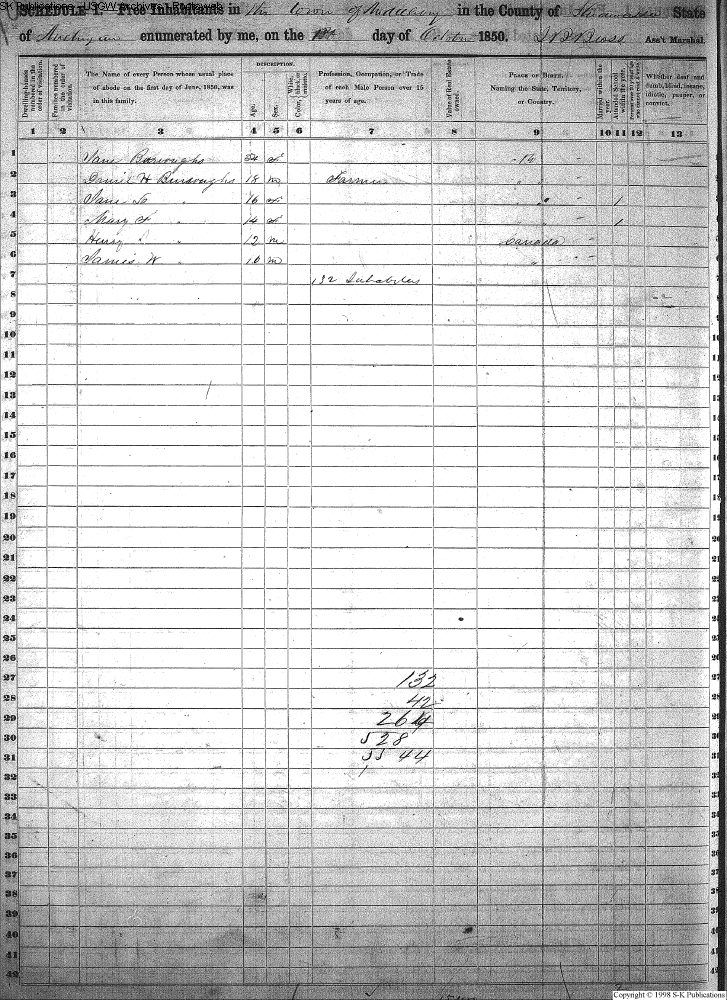 S-K Publications - USGW Archives - Rootsweb
SCHEDULE I. Free Inhabitants in the town of Middlebury in the County of Shiawassee State
of Michigan enumerated by me, on the day of October 1850. Ass't Marshal.
Dwelling-houses numbered in the order of visitation.
Families numbered in the order of visitation.
The Name of every Person whose usual place of abode on the first day of June, 1850, was in this family.
DESCRIPTION.
Age.
Sex.
White, black, or mulatto.
Color,
Profession, Occupation, or Trade of each Male Person over 15 years of age.
Value of Real Estate owned.
PLACE OF BIRTH.
Naming the State, Territory, or Country.
Married within the year.
Attended School within the year.
Whether deaf and dumb, blind, insane, idiotic, pauper, or convict.
1 2 3 4 5 6 7 8 9 10 11 12 13
1 Jane Burroughs 54 f
2 Daniel H Burroughs 18 m Farmer "
3 Jane " 16 f " 1
4 Mary F " 14 f " 1
5 Henry " 12 m Canada
6 James W " 10 m "
7 132 Inhabitants
8
9
10
11
12
13
14
15
16
17
18
19
20
21
22
23
24
25
26
27 132
28 42
29 264
30 528
31 5544
32
33
34
35
36
37
38
39
40
41
42
Copyright © 1998 S-K Publications